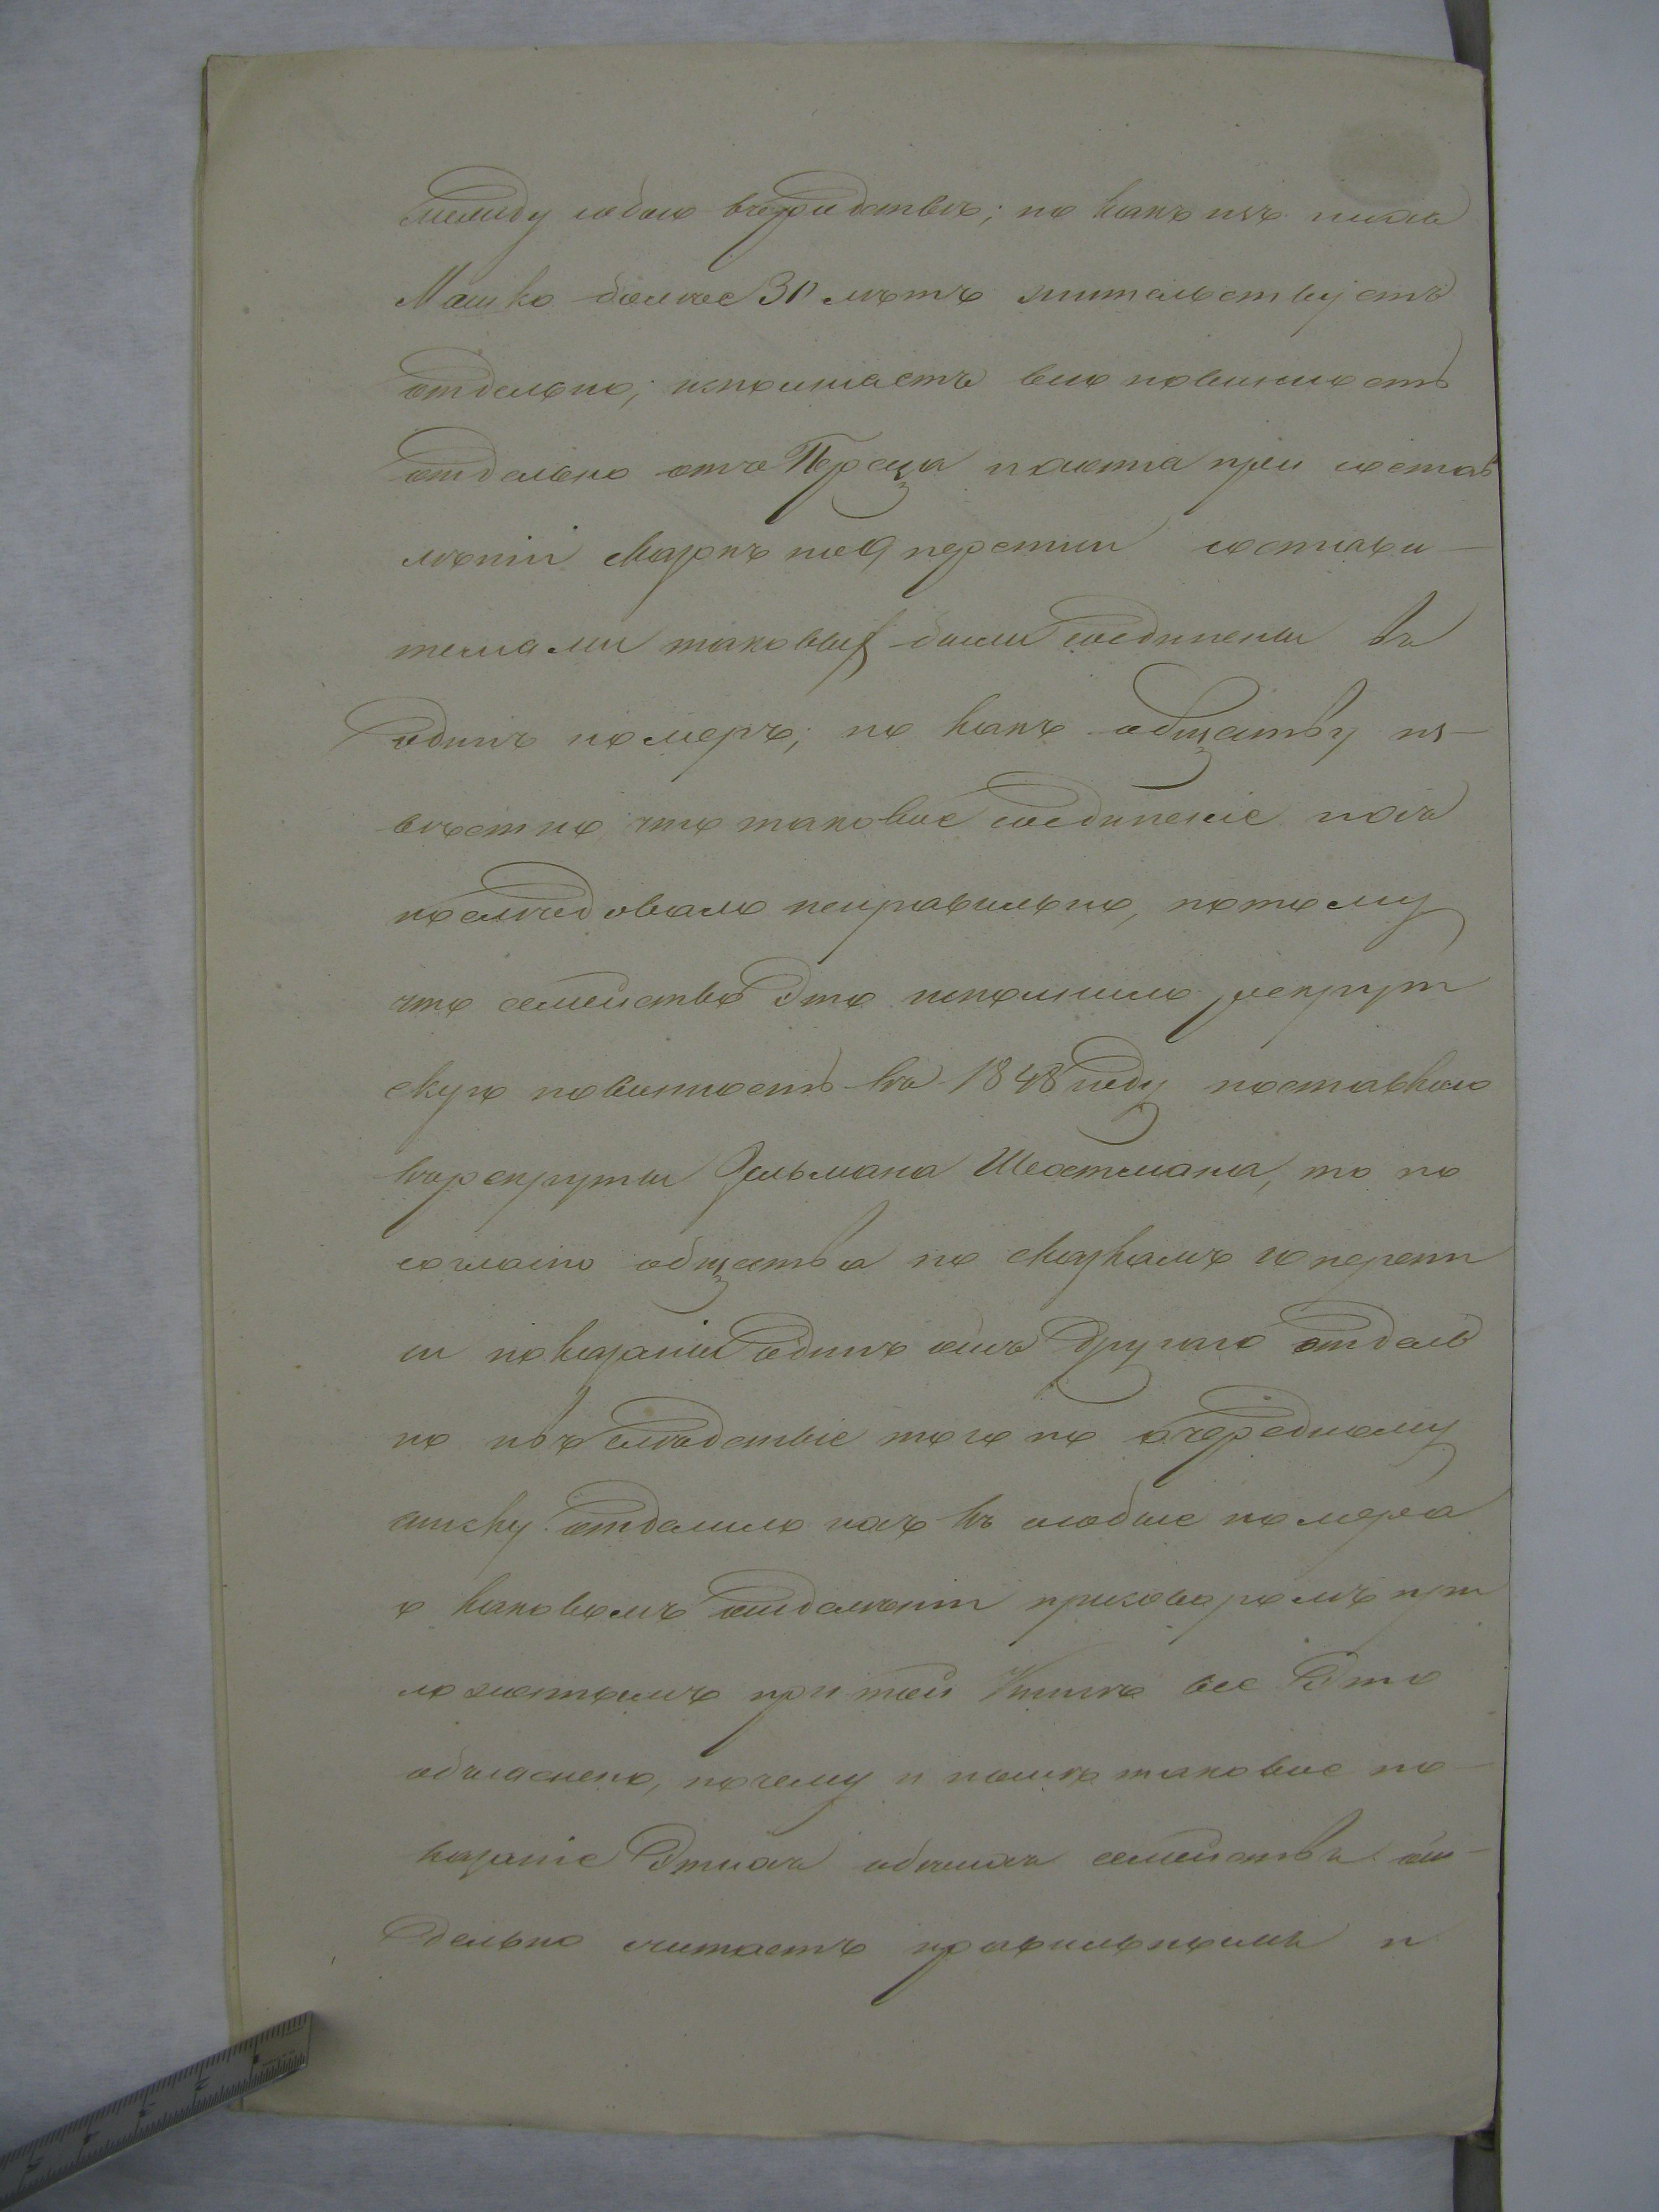 между собою въ родствѣ; но какъ изъ нихъ
Мошко более 30 лѣтъ жительствуетъ
отдельно; исполняетъ всю повинность
отдельно отъ Переца и хотя при состав
лѣніи сказкъ по 9 переписи состави-
телями таковыхъ были соединены въ
одинъ номеръ; но какъ обществу из-
вѣстно что таковое соединеніе ихъ
последовало неправильно, потому
что семейство это исполнило рекрут
скую повинность въ 1848 году поставкою
въ рекруты Зельмана Шехтмана, то по
согласію общества по сказкамъ 10 перепи
си показаны одинъ отъ другаго отдель
но и въ слѣдствіе того по очередному
списку отдалило ихъ въ особые номера
о каковомъ отдалѣніи приговоромъ при
ложеннымъ при той Книгѣ все это
объяснено, почему и нынѣ таковое по-
казаніе этихъ обоихъ семействъ от-
дельно считаетъ правильнымъ и